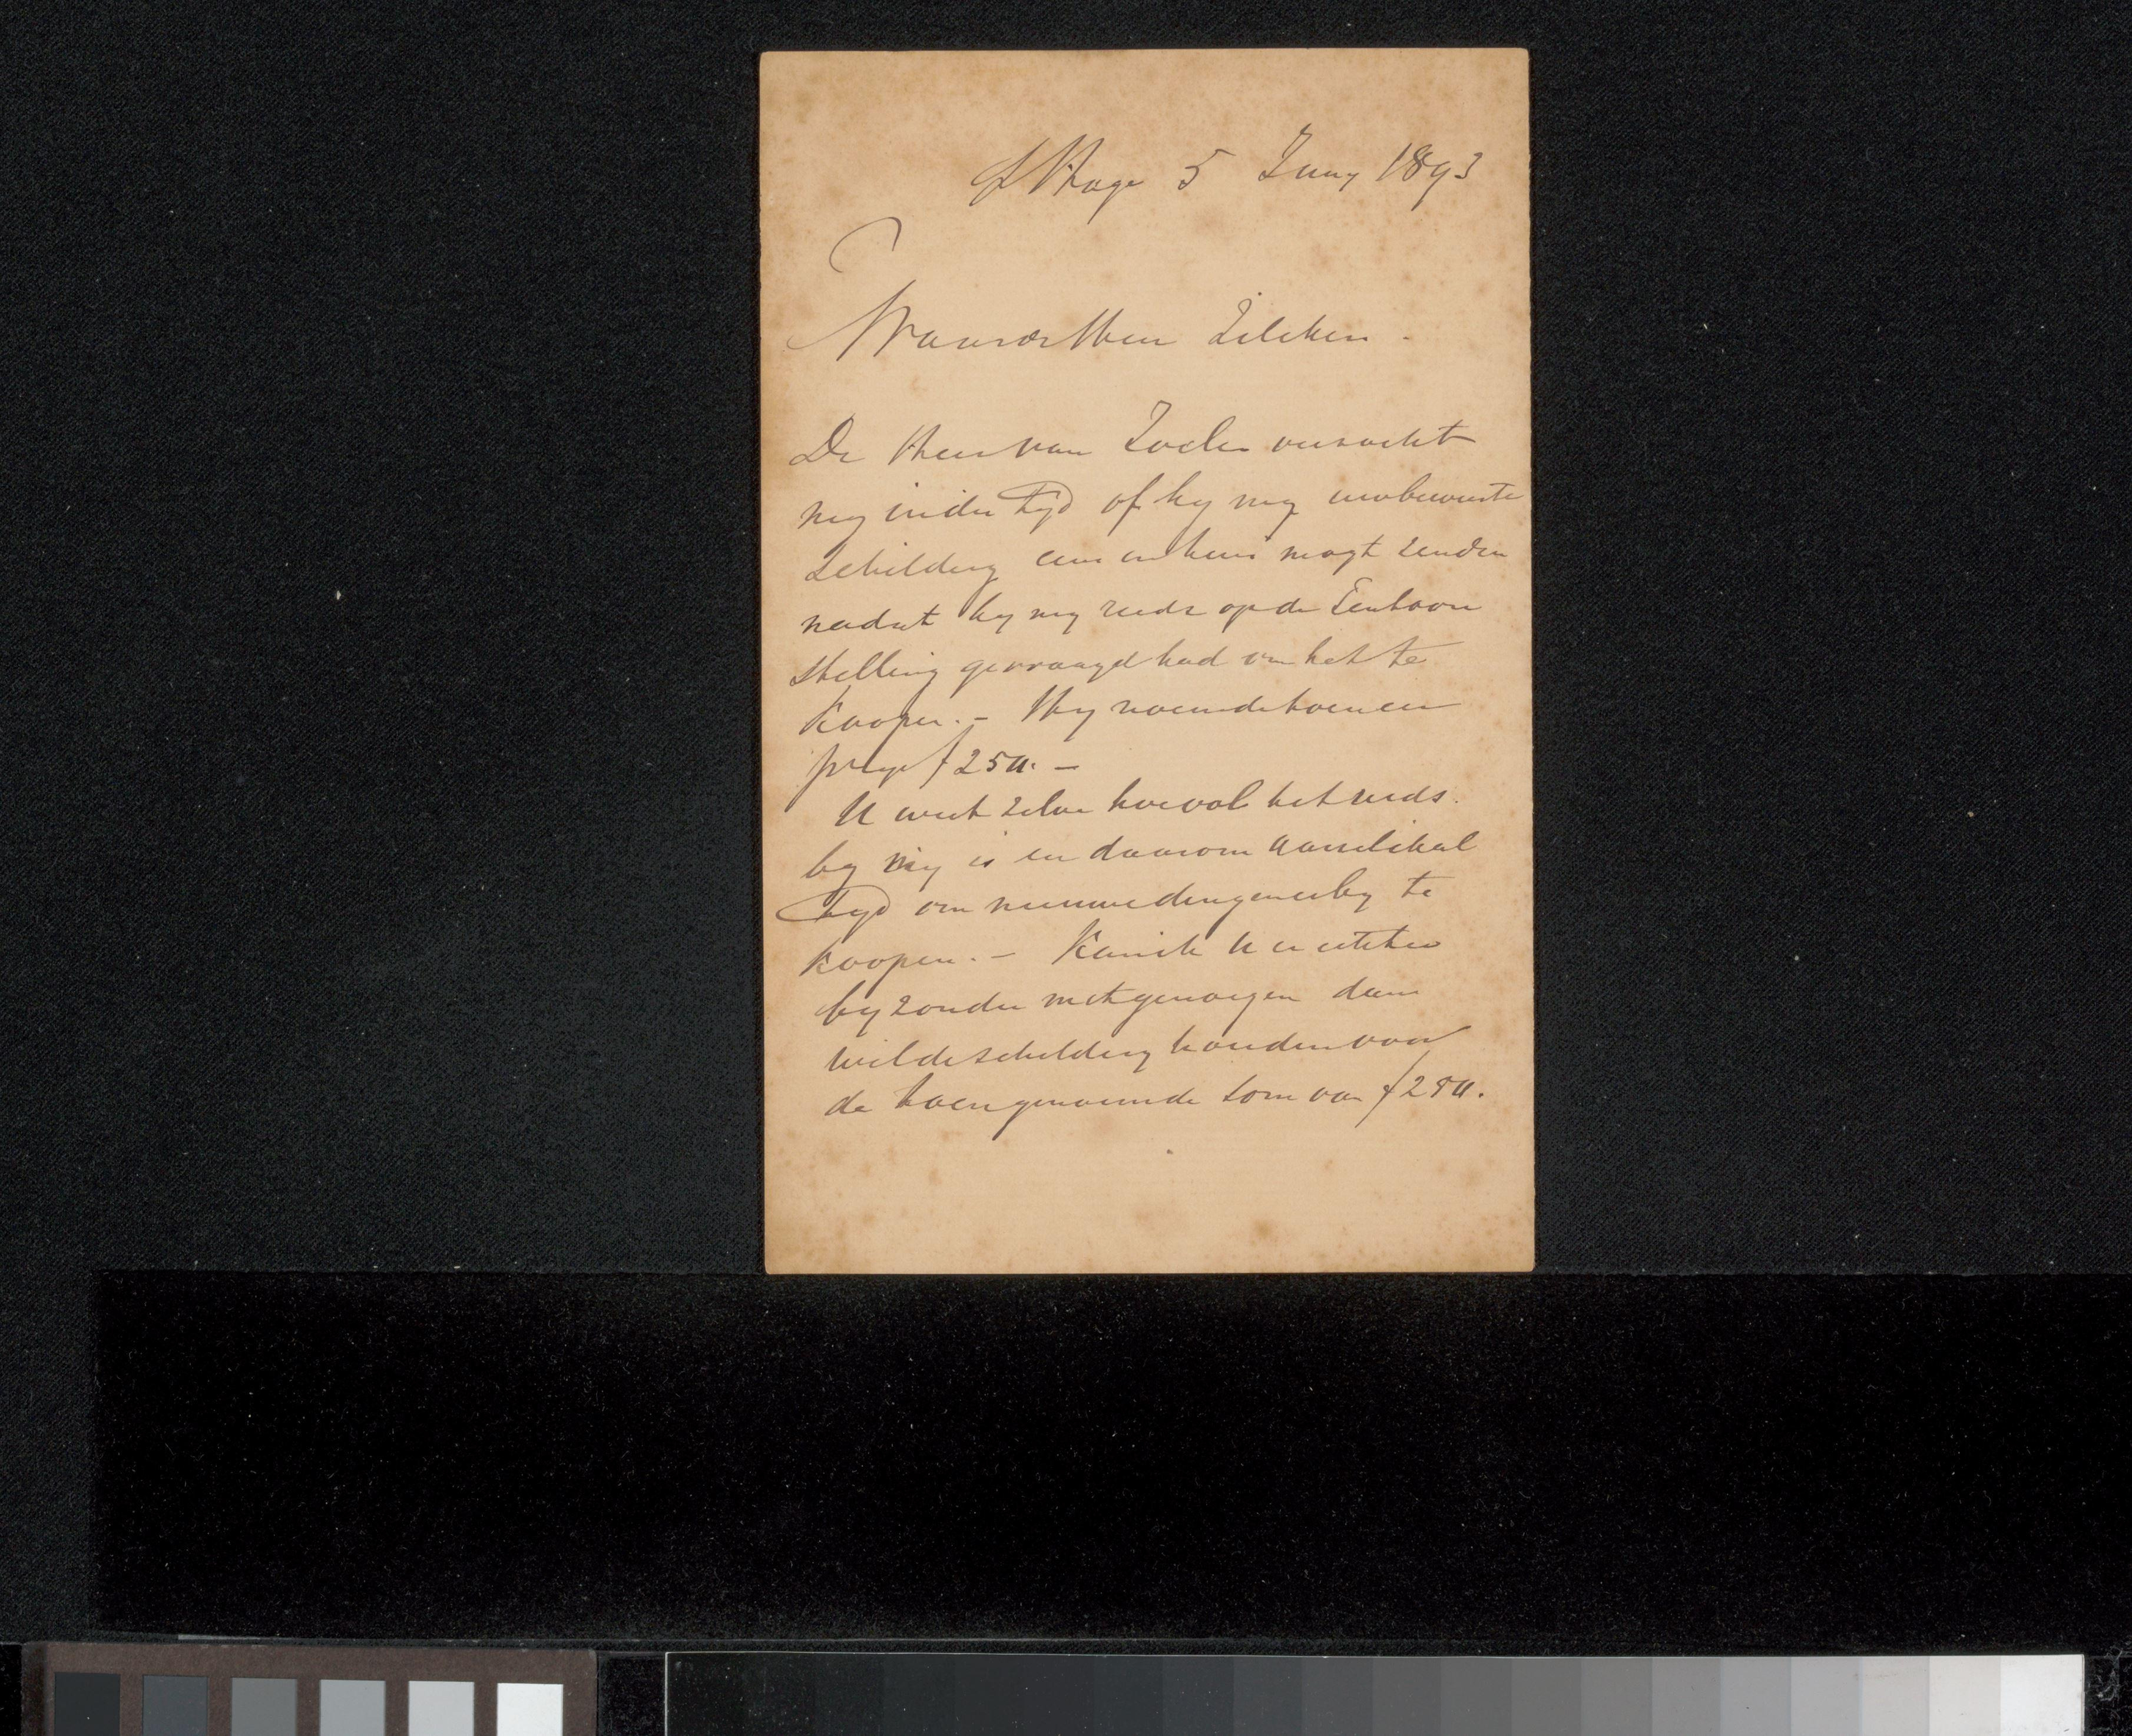 s'Hage 5 Juny 1893
Waarde Heer Zilcken.
De Heer van verzocht
my inder tyd of hy my een bewuste
schildery eens in huis mogt zenden
nadat hy my reeds op de Tentoon
stelling gevraagd had om het te
koopen. – Hy noemde toen een
prys f 250. –
U weet zelve hoe vol het reeds
by my is en daarom aarsel ik al
tyd om nieuwe dingen erby te
koopen. – Kan ik U er echter
byzonder met genoegen dan
wil de schildery houden voor
de toen genoemde som van f 250.